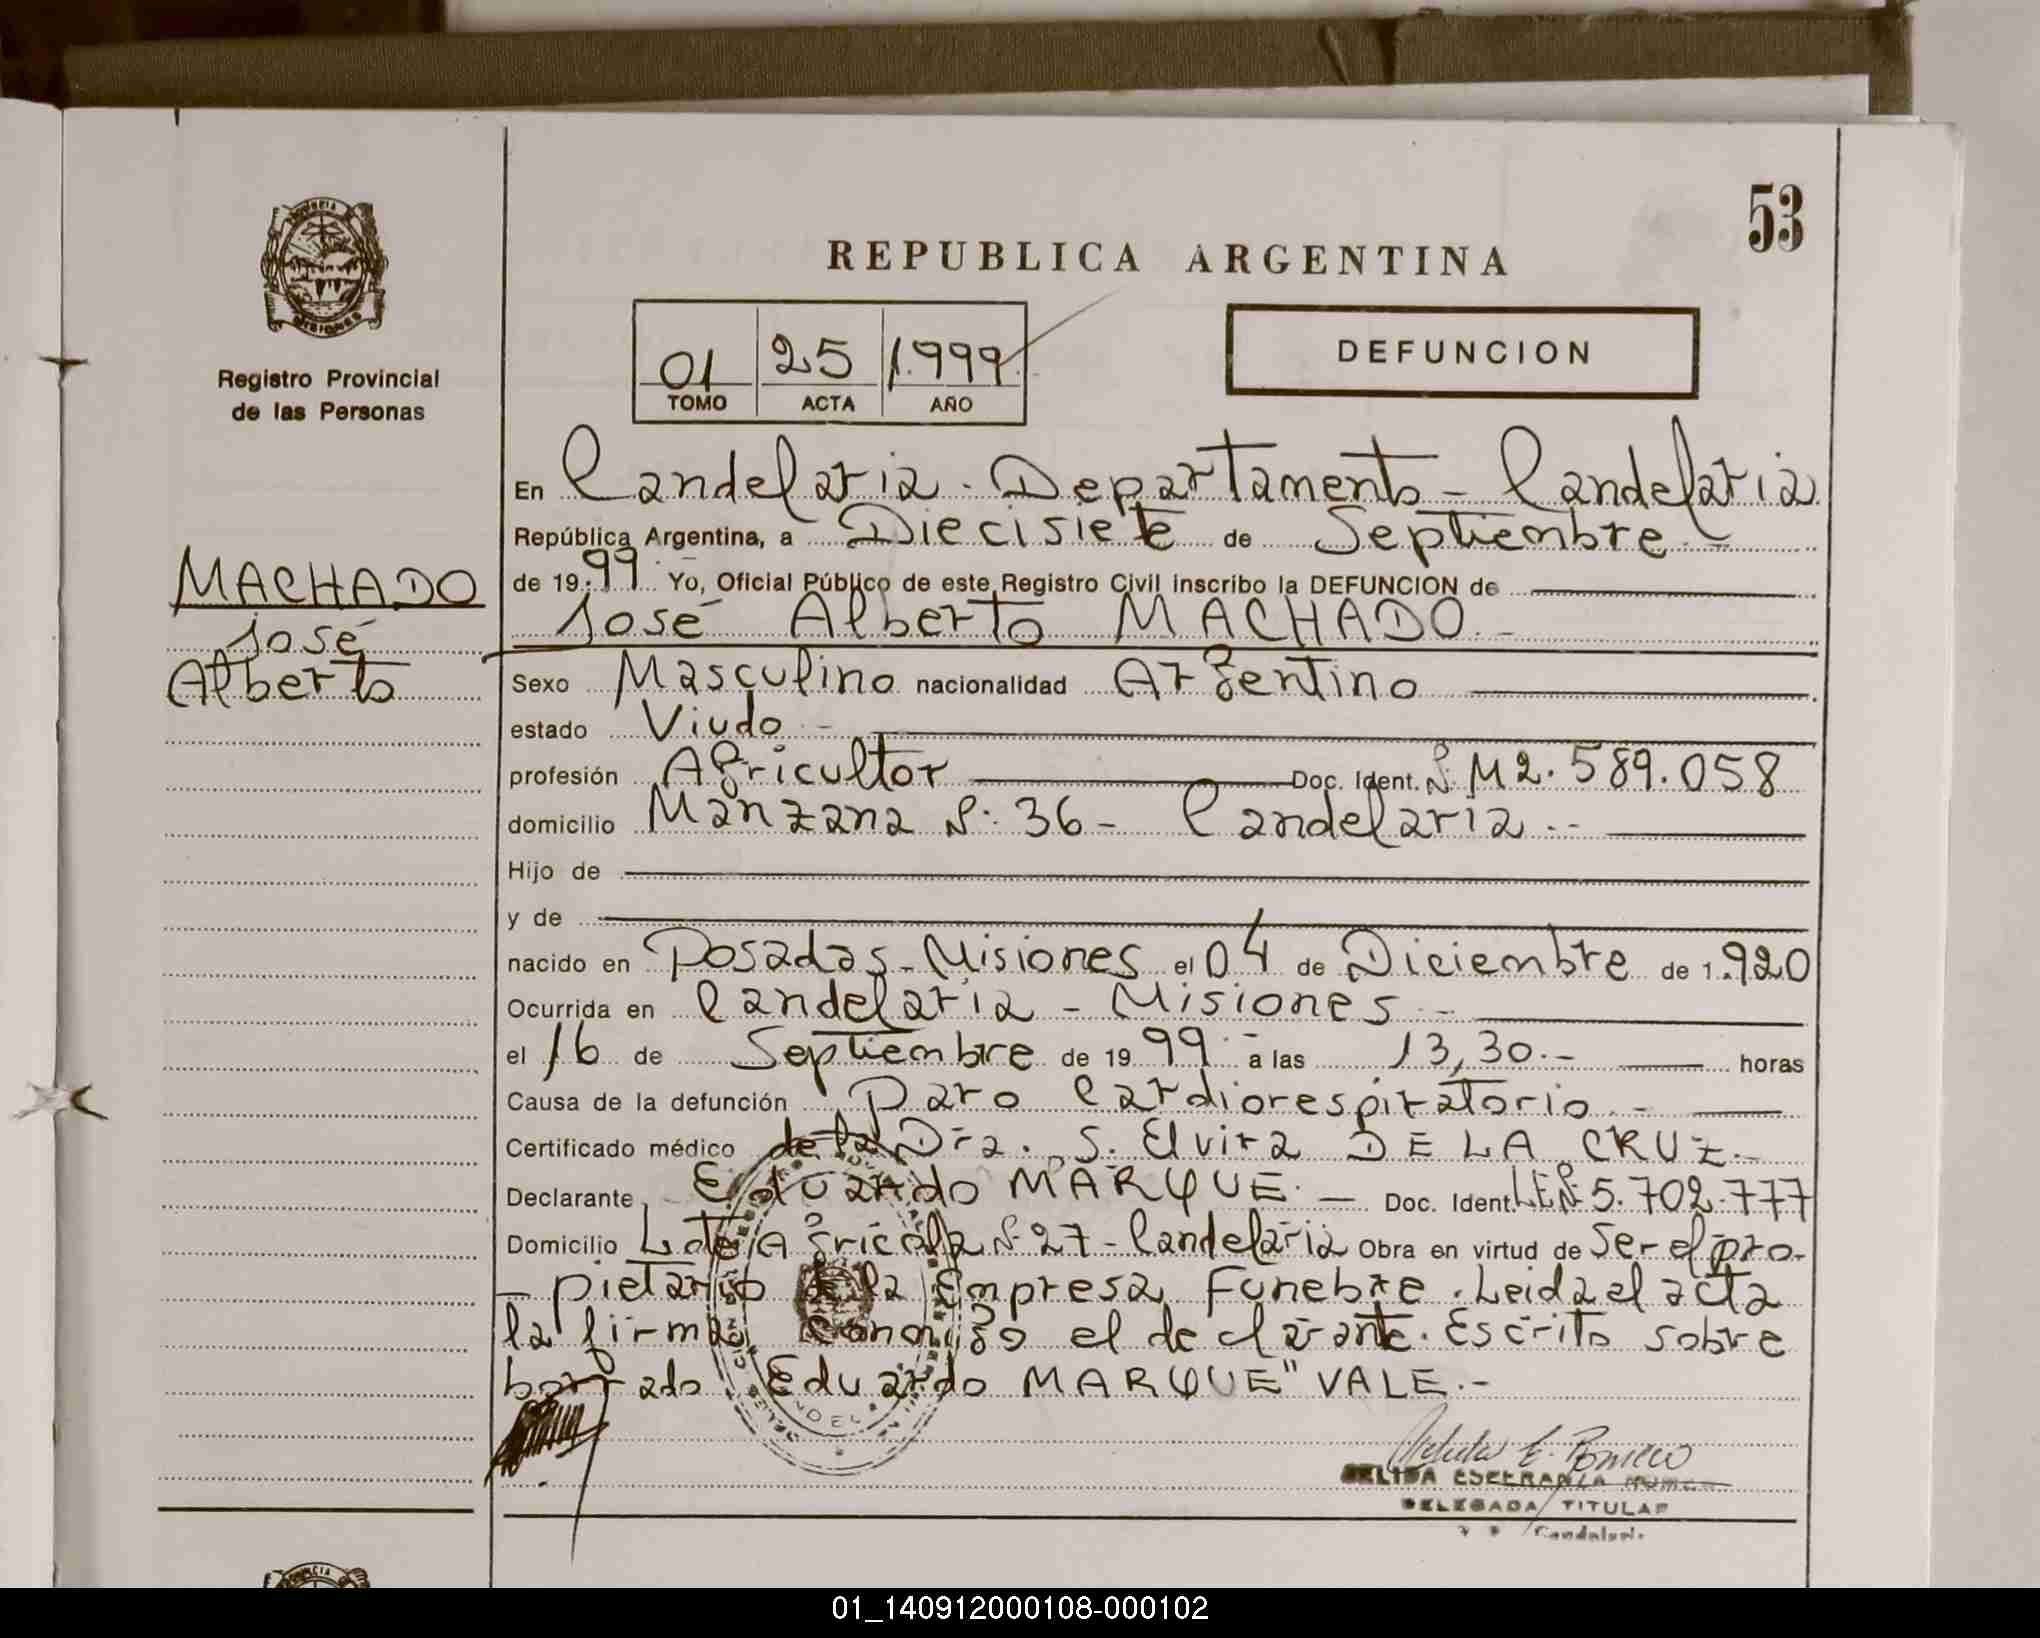 53
REPUBLICA ARGENTINA
MISIONES
Registro Provincial
de las Personas
01 25 1.999
TOMO ACTA AÑO
DEFUNCION
MACHADO
José
Alberto
En Candelaria - Departamento - Candelaria
República Argentina, a Diecisiete de Septiembre -
de 19 99 Yo, Oficial Público de este Registro Civil inscribo la DEFUNCION de
José Alberto MACHADO -
Sexo Masculino nacionalidad Argentino
estado Viudo -
profesión Agricultor Doc. Ident. Nº M 2.589.058
domicilio Manzana Nº 36 - Candelaria.-
Hijo de
y de
nacido en Posadas - Misiones el 04 de Diciembre de 1.920
Ocurrida en Candelaria - Misiones -
el 16 de Septiembre de 19 99 a las 13,30.- horas
Causa de la defunción Paro Cardiorespiratorio.-
Certificado médico de la Dra. S. Elvira DE LA CRUZ.-
Declarante Eduardo MARQUE.- Doc. Ident. L.E.Nº 5.702.777
Domicilio Lote Agricola Nº 27 - Candelaria Obra en virtud de Ser el pro-
- pietario de la Empresa Funebre. Leida el acta
la firma Conmigo el declarante. Escrito sobre
borrado Eduardo MARQUE" VALE.-
ESPERANZA
DELEGADA TITULAR
Candelaria
01_140912000108-000102